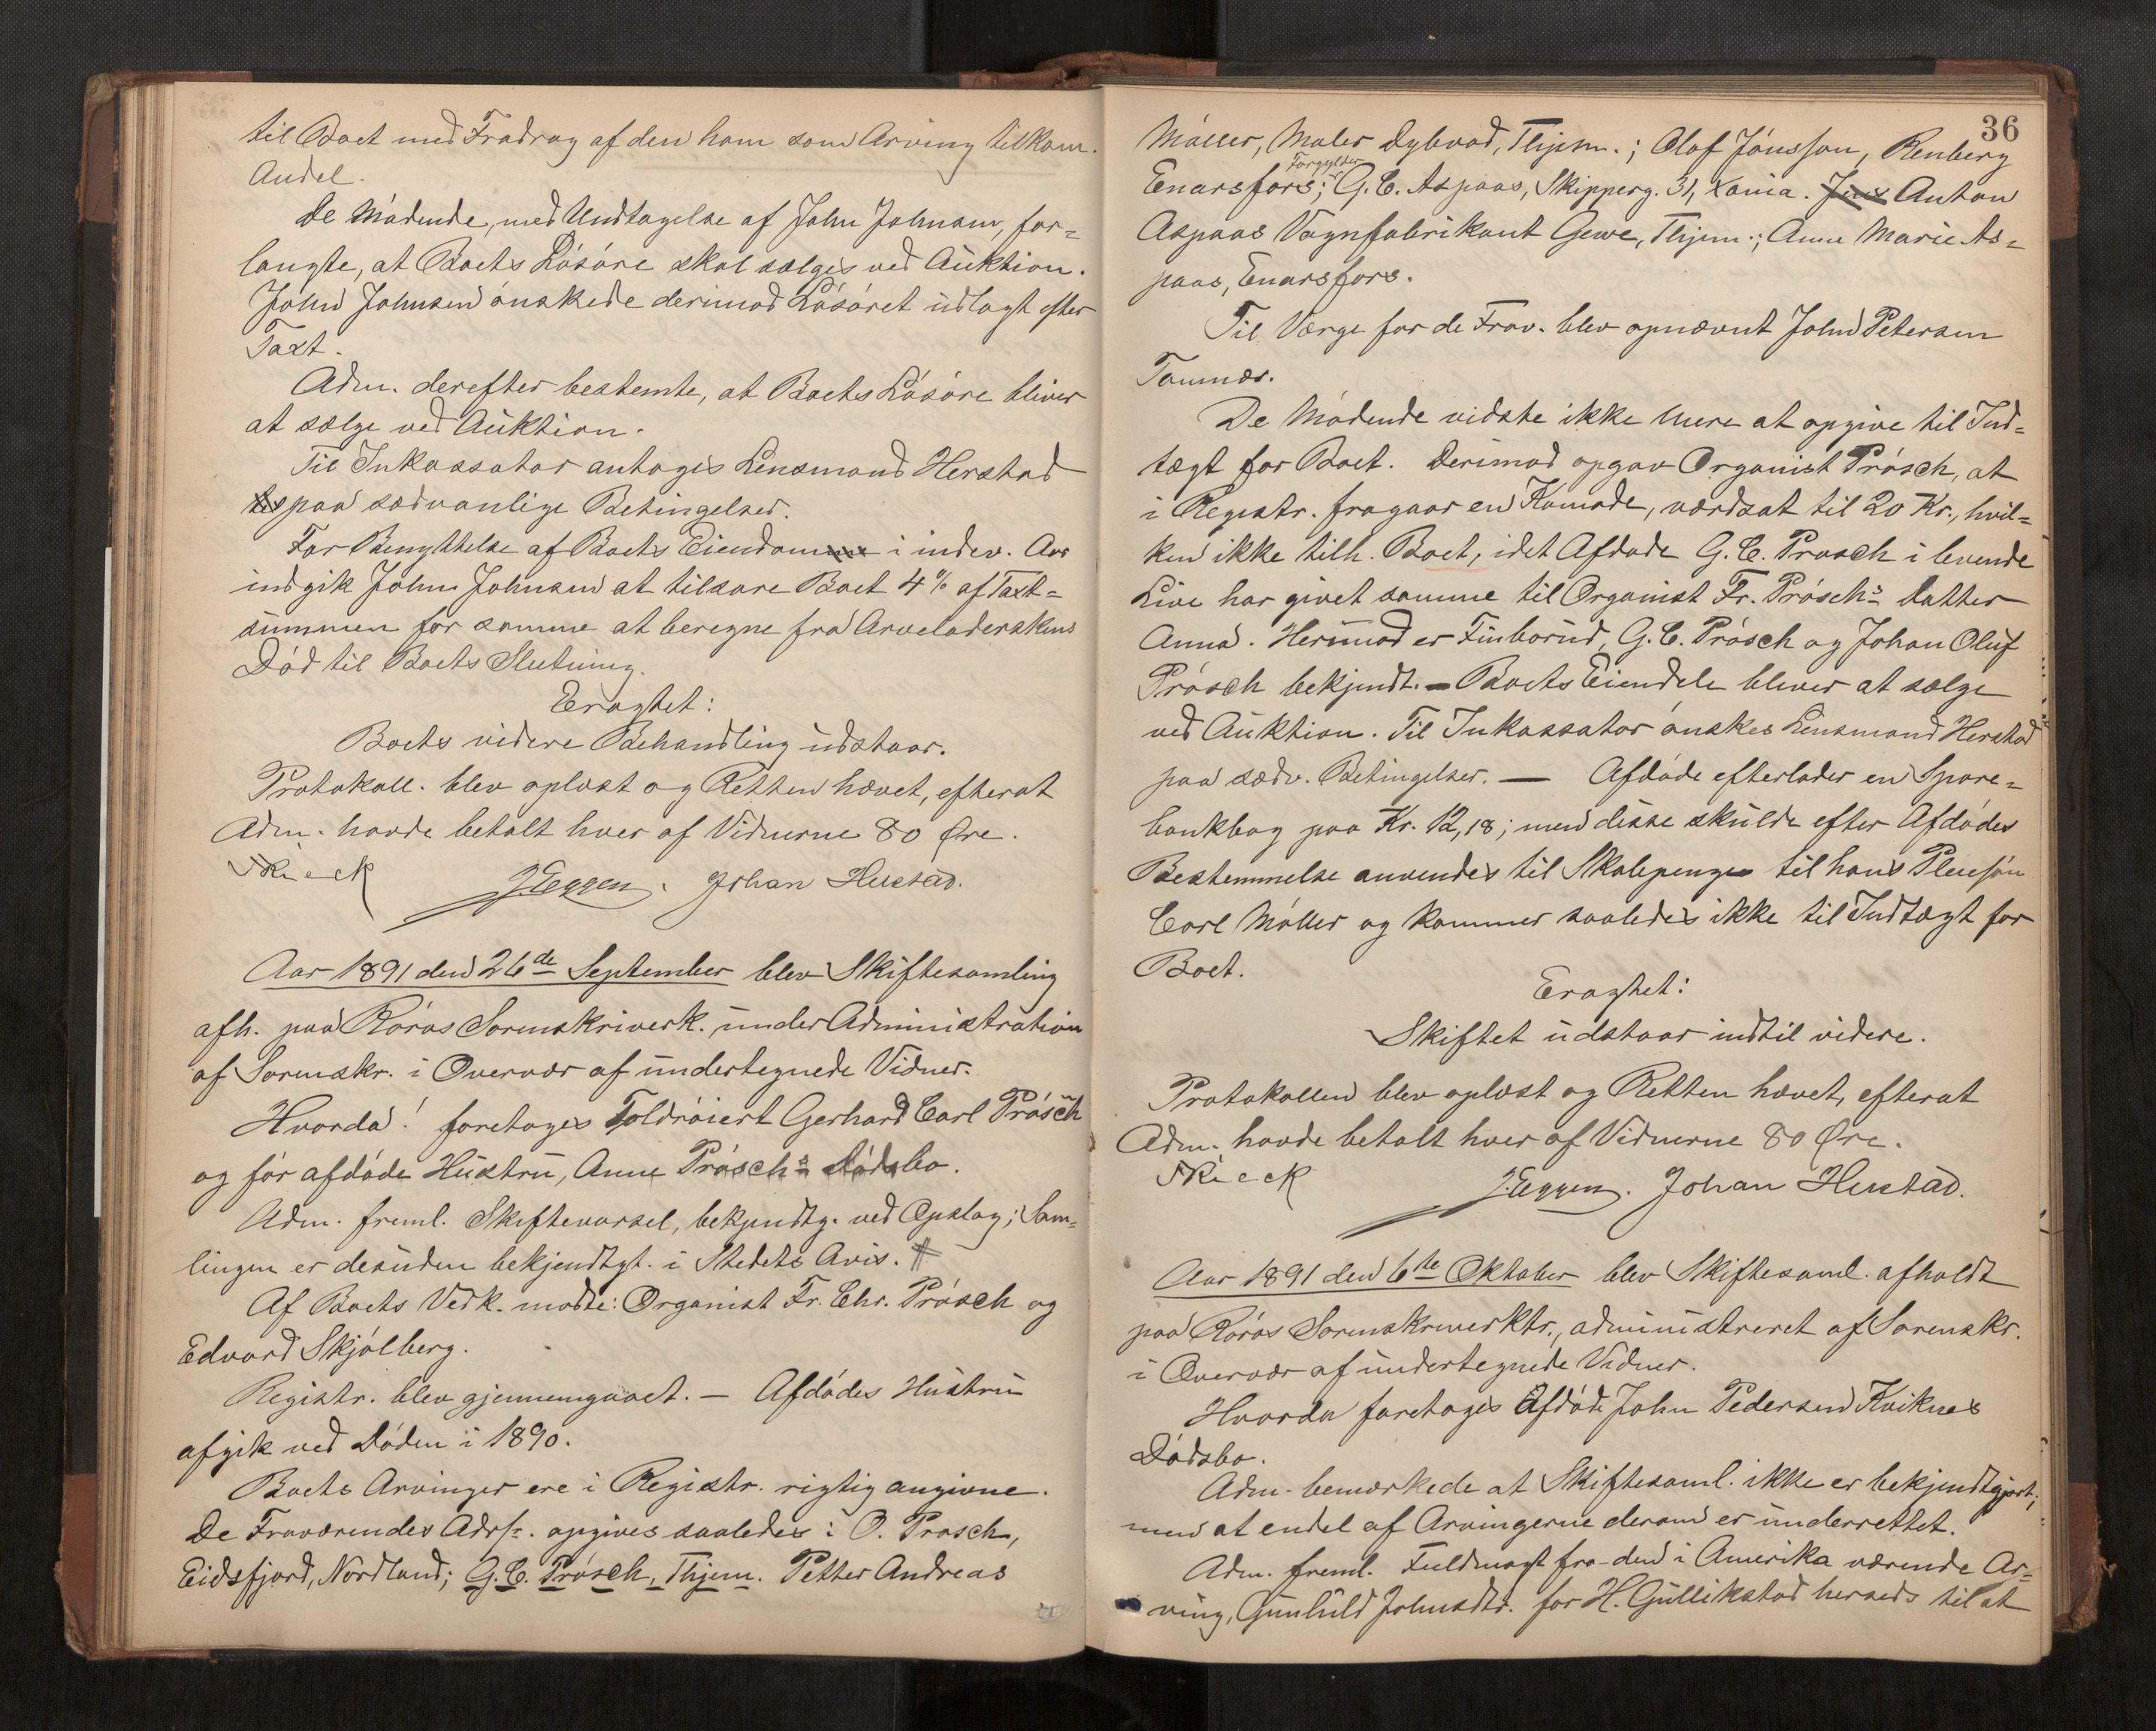 til Boet med Fradrag af den ham som Arving tilkom.
Andel.
De Mødende, med Undtagelse af John Johnsen, for=
langte, at Boets Løsøre skal sælges ved Auktion.
John Johnsen ønskede derimod Løsøret udlagt efter
Taxt.
Adm. derefter bestemte, at Boets Løsøre bliver
at sælge ved Auktion.
Til Inkassator antoges Lensmand Herstad
paa sædvanlige Betingelser.
For Benyttelse af Boets Eiendom i indev. Aar
indgik John Johnsen at tilsvare Boet 4 % af Taxt=
summen for samme at beregne fra Arveladerskens
Død til Boets Slutning.
Eragtet:
Boets videre Behandling udstaar.
Protokoll. blev oplæst og Retten hævet, efterat
Adm. havde betalt hver af Vidnerne 80 Øre.
Rieck J. Eggen. Johan Hustad.
Aar 1891 den 26de September blev Skiftesamling
afh. paa Røros Sorenskriverk. under Administration
af Sorenskr. i Overvær af undertegnede Vidner.
Hvorda! foretoges Toldrøiert Gerhard Carl Prøsch
og før afdøde Hustru, Anne Prøschs Dødsbo.
Adm. freml. Skiftevarsel, bekjendtg. ved Opslag; Sam=
lingen er desuden bekjendtgt. i Stedets Avis. #
Af Boets Vedk. mødte: Organist Fr. Chr. Prøsch og
Edvard Skjølberg.
Registr. blev gjennemgaaet. — Afdødes Hustru
afgik ved Døden i 1890.
Boets Arvinger ere i Registr. rigtig angivne.
De Fraværendes Adrs. opgives saaledes: O. Prøsch,
Eidsfjord, Nordland; G. C. Prøsch, Thjem. Petter Andreas
36
Møller, Maler Dybvad, Thjem.; Olaf Jónsson, Renberg
Forgylder
Enarsfors; G. C. Aspaas, Skipperg. 31, Xania. Jens Anton
Aspaas Vognfabrikant Gewe, Thjem.; Anne Marie As=
paas, Enarsfors.
Til Værge for de Frav. blev opnævnt John Petersen
Tamnæs.
De Mødende vidste ikke mere at opgive til Ind=
tægt for Boet. Derimod opgav Organist Prøsch, at
i Registr. fragaar en Komode, værdsat til 20 Kr., hvil=
ken ikke tilh. Boet, idet Afdøde G. C. Prøsch i levende
Live har givet samme til Organist Fr. Prøschs Datter
Anna. Herimod er Finborud, G. C. Prøsch og Johan Oluf
Prøsch bekjendt. — Boets Eiendele bliver at sælge
ved Auktion. Til Inkassator ønskes Lensmand Herstad
paa sædv. Betingelser. — Afdøde efterlader en Spare=
bankbog paa Kr. 12,18; men disse skulde efter Afdødes
Bestemmelse anvendes til Skolepenge til hans Pleiesøn
Carl Møller og kommer saaledes ikke til Indtægt for
Boet.
Eragtet:
Skiftet udstaar indtil videre.
Protokollen blev oplæst og Retten hævet, efterat
Adm. havde betalt hver af Vidnerne 80 Øre.
Rieck J. Eggen. Johan Hustad.
Aar 1891 den 6te Oktober blev Skiftesaml. afholdt
paa Røros Sorenskriverktr., administreret af Sorenskr.
i Overvær af undertegnede Vidner.
Hvorda foretoges Afdøde John Pedersen Kviknes
Dødsbo.
Adm. bemærkede at Skiftesaml. ikke er bekjendtgjort;
men at endel af Arvingerne derom er underrettet.
Adm. freml. Fuldmagt fra den i Amerika værende Ar=
ving, Gunhild Johnsdtr. for H. Gullikstad herseds til at